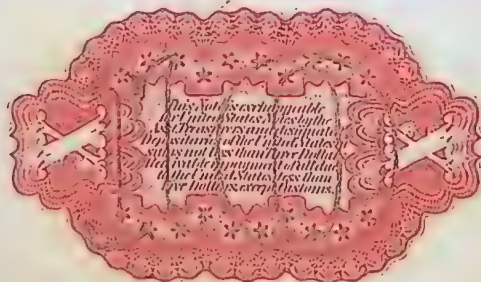 This Note is exchangeable
for United States Notes by the
Ass't Treasurers and designated
of the United States
less than Three Dollars
Receivable in payment of all dues
to the United States less than
Five Dollars except Customs.